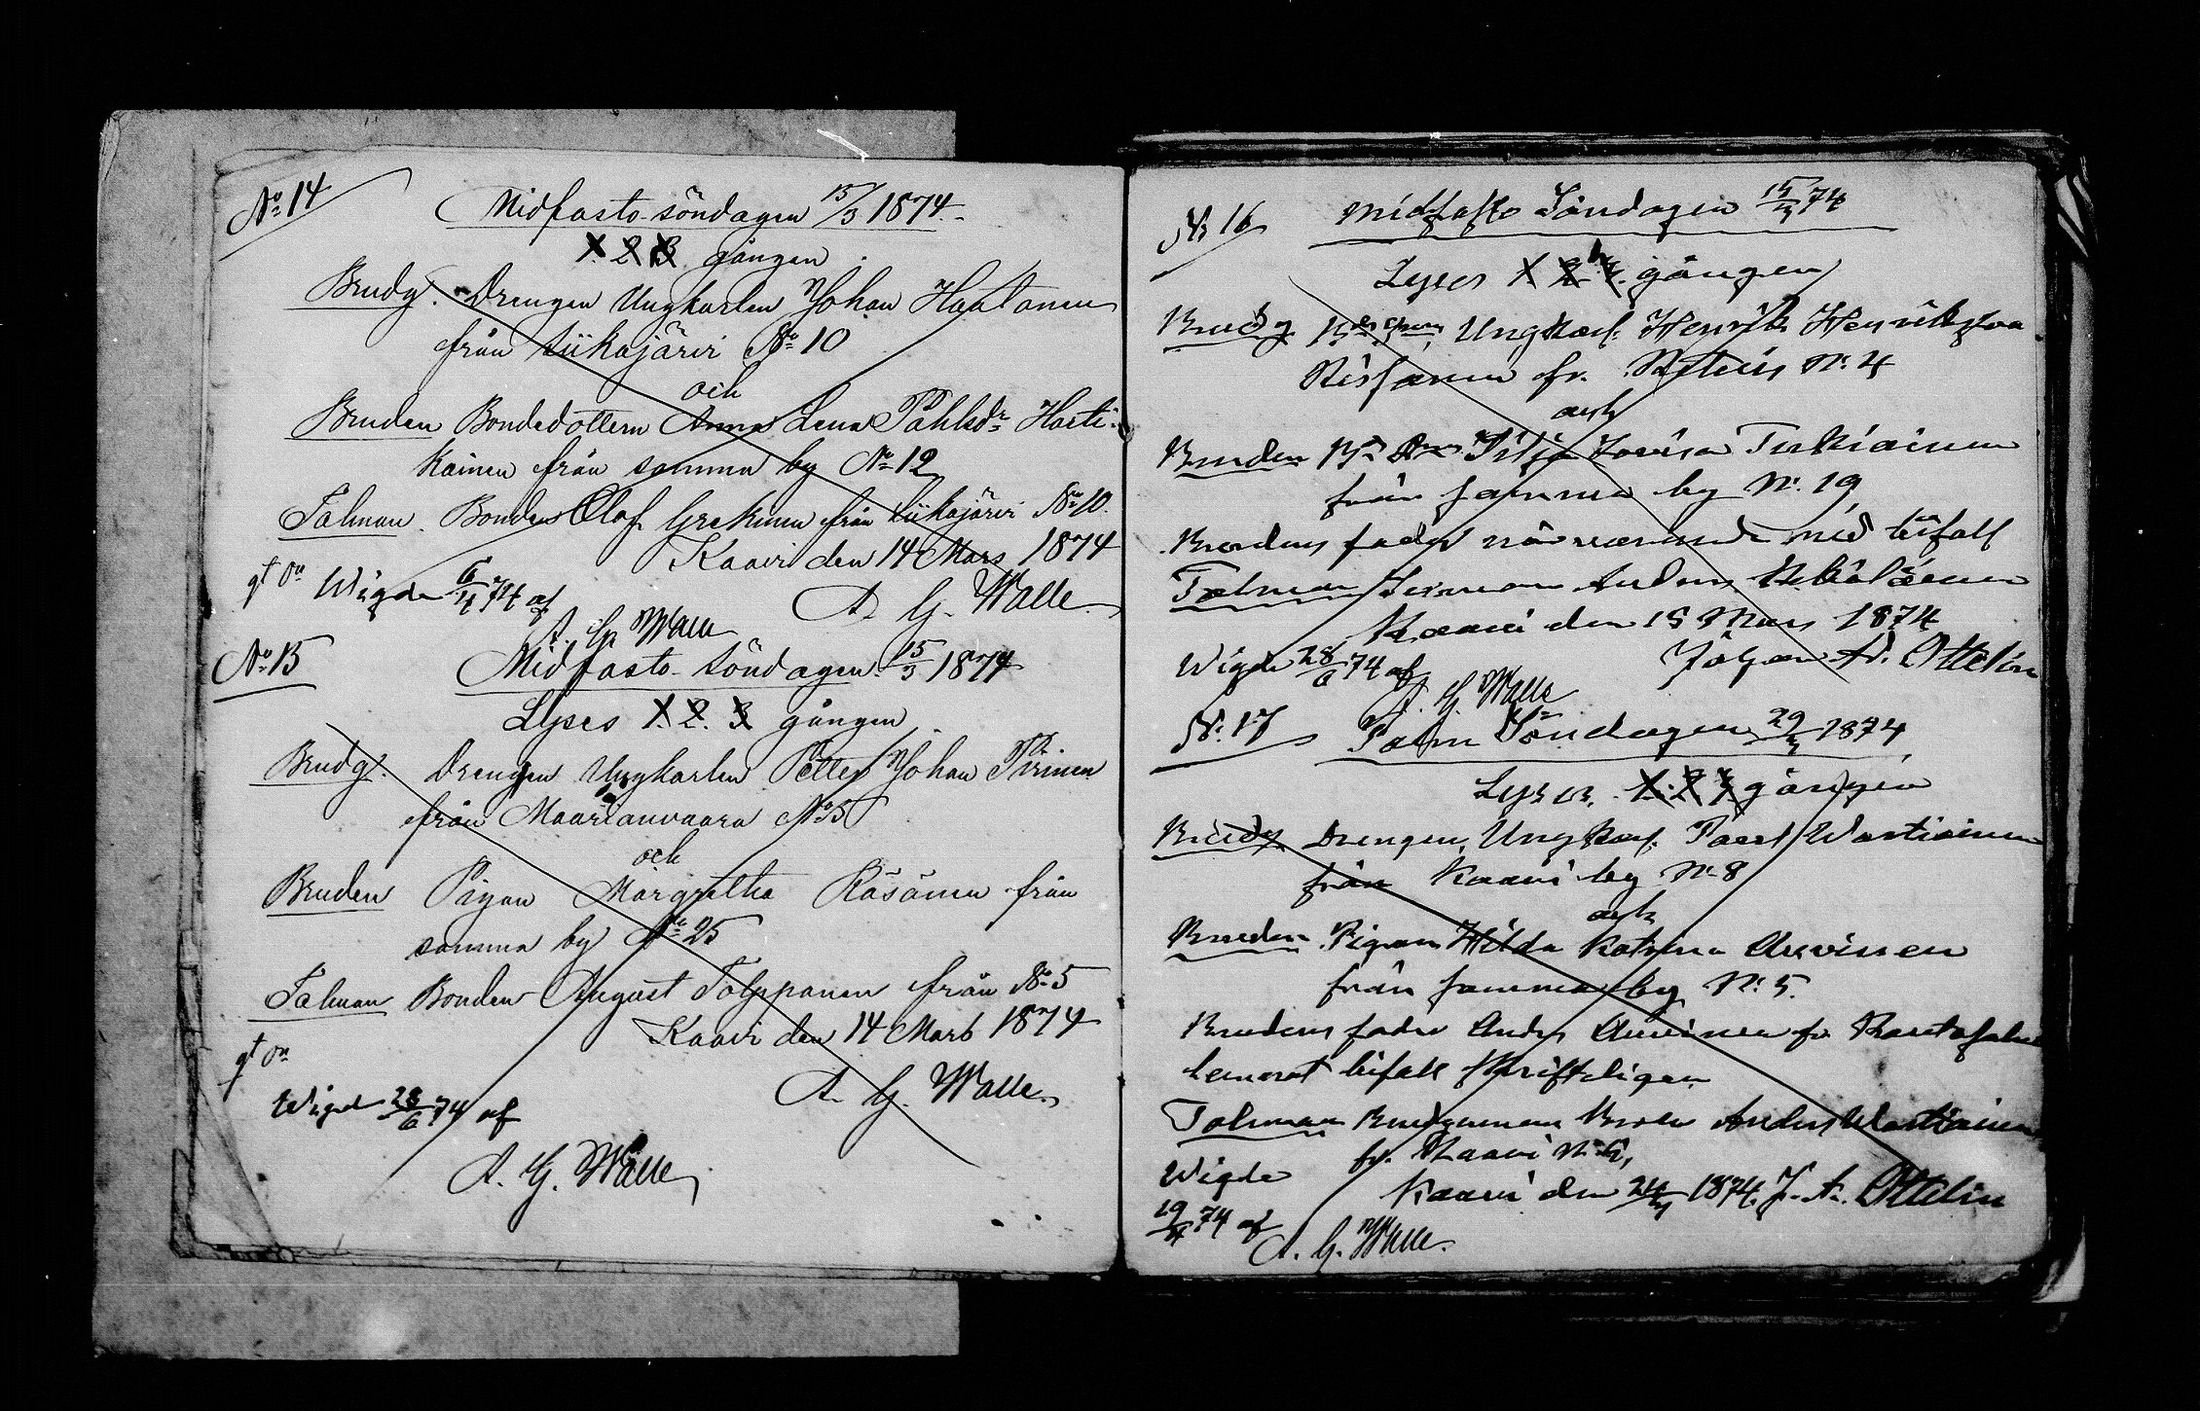 No 14
Midfasto-söndagen 15/3 1874.
1. 2. 3. gången
Brudg. Drengen Ungkarlen Johan Hoatanen
från Siikajärvi No 10
och
Bruden Bondedottern Anna Lena Påhlsdr Harti-
kainen från samma by No 12
Talman. Bonden Olof från Siikajärvi No 10.
Kaavi den 14 Mars 1874
Wigde 6/4 74 af
A. G. Walle
A. G. Walle
No 15
Midfasto-söndagen 15/3 1874
Lyses 1. 2. 3 gången
Brudg. Drengen Ungkarlen Petter Johan Pirinen
från Maarianvaara No 5
och
Bruden Pigan Margretha Räsänen från
samma by No 25
Talman Bonden August Tolppanen från No 5
Kaavi den 14 Mars 1874
A. G. Walle
Wigde 28/6 74 af
A. G. Walle
N. 16
Midfasto Söndagen 15/3 74
Lyses 1 2 3 gången
Brudg Ungkarl. Henrik Henriksson
fr. N. 4
och
Bruden Lovisa Turkiainen
från samma by N. 19
Brudens fader närvarande med bifall
Talman Anders
Kaavi den 15 Mars 1874
Johan A. Ottelin
Wigde 28/6 74 af
A. G. Walle
N. 17
Palm Söndagen 29/3 1874
Lyses 1. 2. 3 gången
Brudg Drengen, Ungkarl. Paul Wartiainen
från Kaavi by N. 8
och
Bruden Pigan Hilda Katrina Auvinen
från samma by N. 5.
Brudens fader Anders Auvinen fr
lemnat bifall skriftligen
Talman Brudgummens Broder Anders Wartiainen
fr. Kaavi N.
Kaavi den 24/3 1874. J. A. Ottelin
Wigde
19/4 74 af
A. G. Walle.